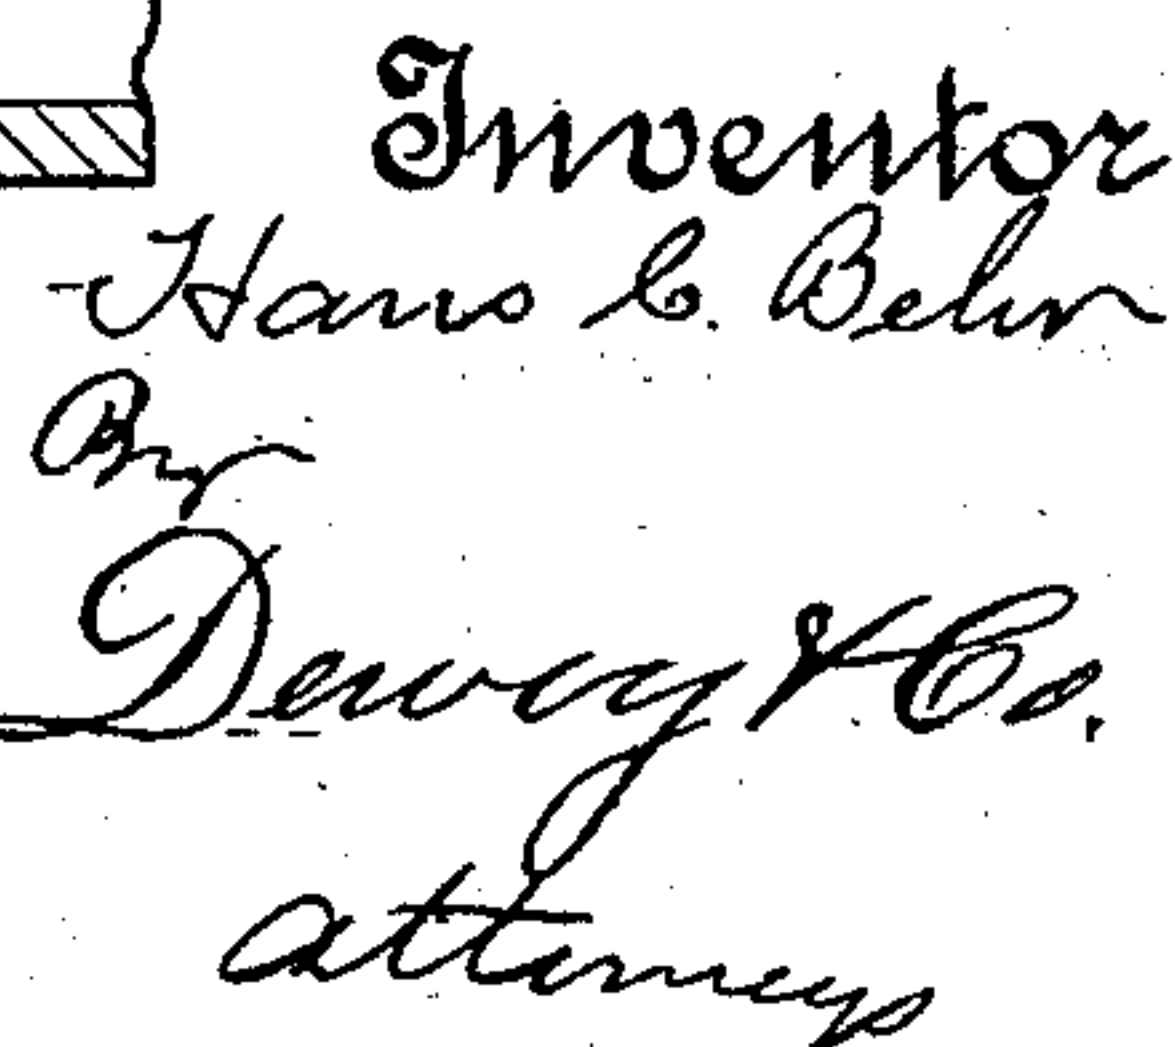 Inventor
Hans C. Behr
By
Dewey & Co.
Attorneys